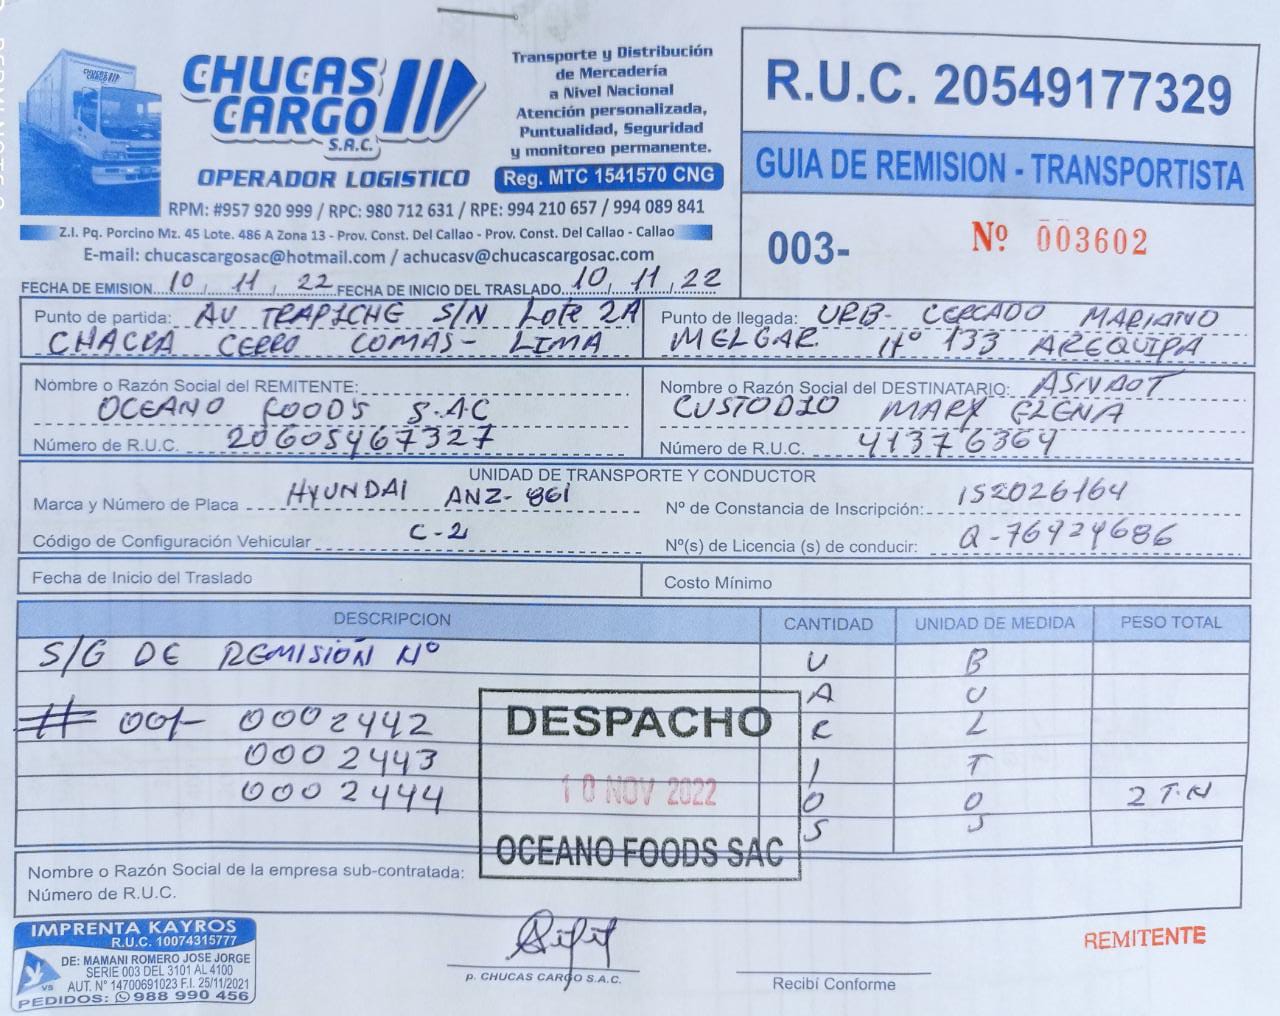 CHUCAS CARGO S.A.C.
OPERADOR LOGISTICO
Transporte y Distribución
de Mercadería
a Nivel Nacional
Atención personalizada,
Puntualidad, Seguridad
y monitoreo permanente.
Reg. MTC 1541570 CNG
RPM: #957 920 999 / RPC: 980 712 631 / RPE: 994 210 657 / 994 089 841
Z.I. Pq. Porcino Mz. 45 Lote. 486 A Zona 13 - Prov. Const. Del Callao - Prov. Const. Del Callao - Callao
E-mail: chucascargosac@hotmail.com / achucasv@chucascargosac.com
R.U.C. 20549177329
GUIA DE REMISION - TRANSPORTISTA
003- Nº 003602
FECHA DE EMISION 10, 11, 22 FECHA DE INICIO DEL TRASLADO 10, 11, 22
Punto de partida: AV TRAPICHE S/N Lote 2A
CHACRA CERRO COMAS- LIMA
Punto de llegada: URB- CERCADO MARIANO
MELGAR Nº 133 AREQUIPA
Nombre o Razón Social del REMITENTE:
OCEANO FOODS S.A.C
Número de R.U.C. 20605467327
Nombre o Razón Social del DESTINATARIO:
CUSTODIO MARY ELENA
Número de R.U.C. 41376364
UNIDAD DE TRANSPORTE Y CONDUCTOR
Marca y Número de Placa HYUNDAI ANZ-861
Código de Configuración Vehicular C-2
Nº de Constancia de Inscripción: 152026164
Nº(s) de Licencia (s) de conducir: Q-76924686
Fecha de Inicio del Traslado
Costo Mínimo
DESCRIPCION CANTIDAD UNIDAD DE MEDIDA PESO TOTAL
S/G DE REMISIÓN Nº V B
A U
# 001- 0002442 R L
0002443 I T
0002444 O O 2 T.N
S S
DESPACHO
10 NOV 2022
OCEANO FOODS SAC
Nombre o Razón Social de la empresa sub-contratada:
Número de R.U.C.
IMPRENTA KAYROS
R.U.C. 10074315777
DE: MAMANI ROMERO JOSE JORGE
SERIE 003 DEL 3101 AL 4100
AUT. N° 14700691023 F.I. 25/11/2021
PEDIDOS: 988 990 456
p. CHUCAS CARGO S.A.C.
Recibí Conforme
REMITENTE